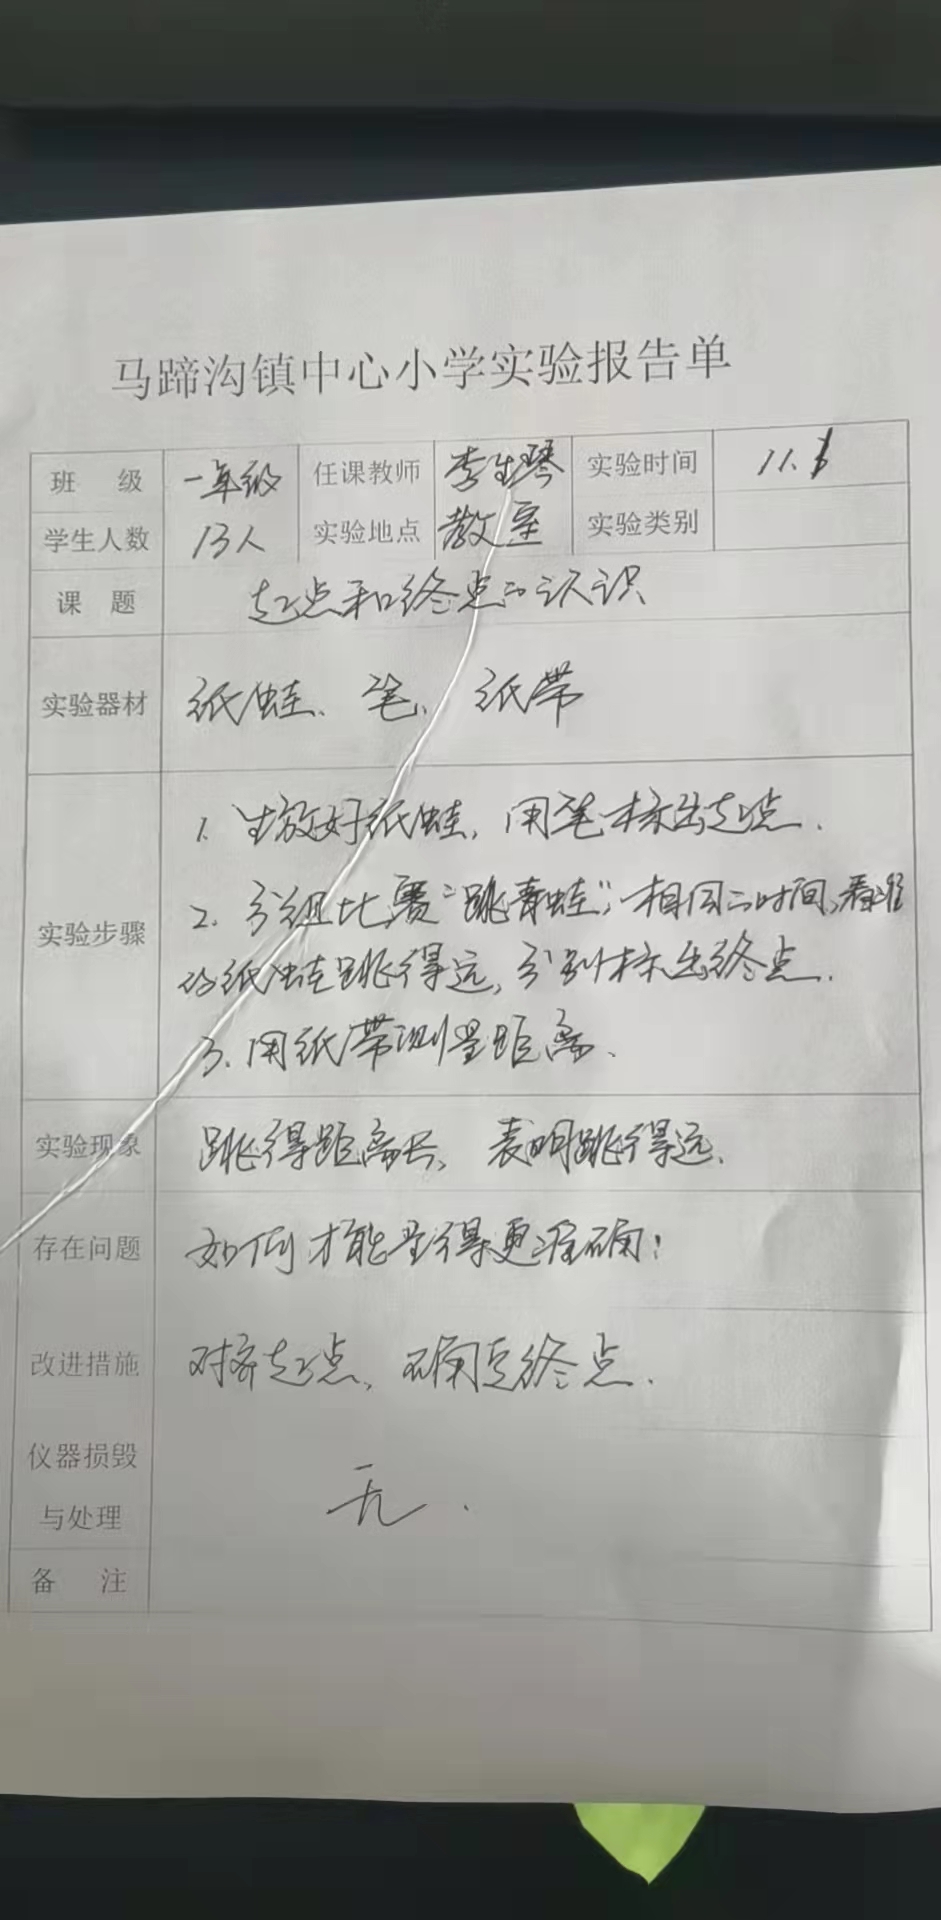 马蹄沟镇中心小学实验报告单
班 级 一年级 任课教师 李生琴 实验时间 11.
学生人数 13人 实验地点 教室 实验类别
课 题 起点和终点的认识
实验器材 纸蛙、笔、纸带
实验步骤
1. 放好纸蛙,用笔标出起点.
2. 分组比赛"跳青蛙",相同的时间,看谁
的纸蛙跳得远,分别标出终点.
3. 用纸带测量距离.
实验现象 跳得距离长,表明跳得远.
存在问题 如何才能量得更准确!
改进措施 对齐起点,确定终点.
仪器损毁
与处理 无.
备 注